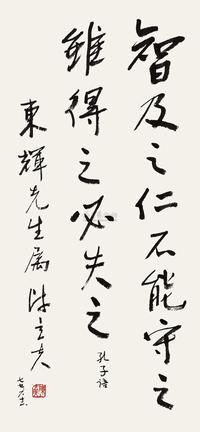 智及之仁不能守之
雖得之必失之
孔子語
東輝先生屬 陳立夫